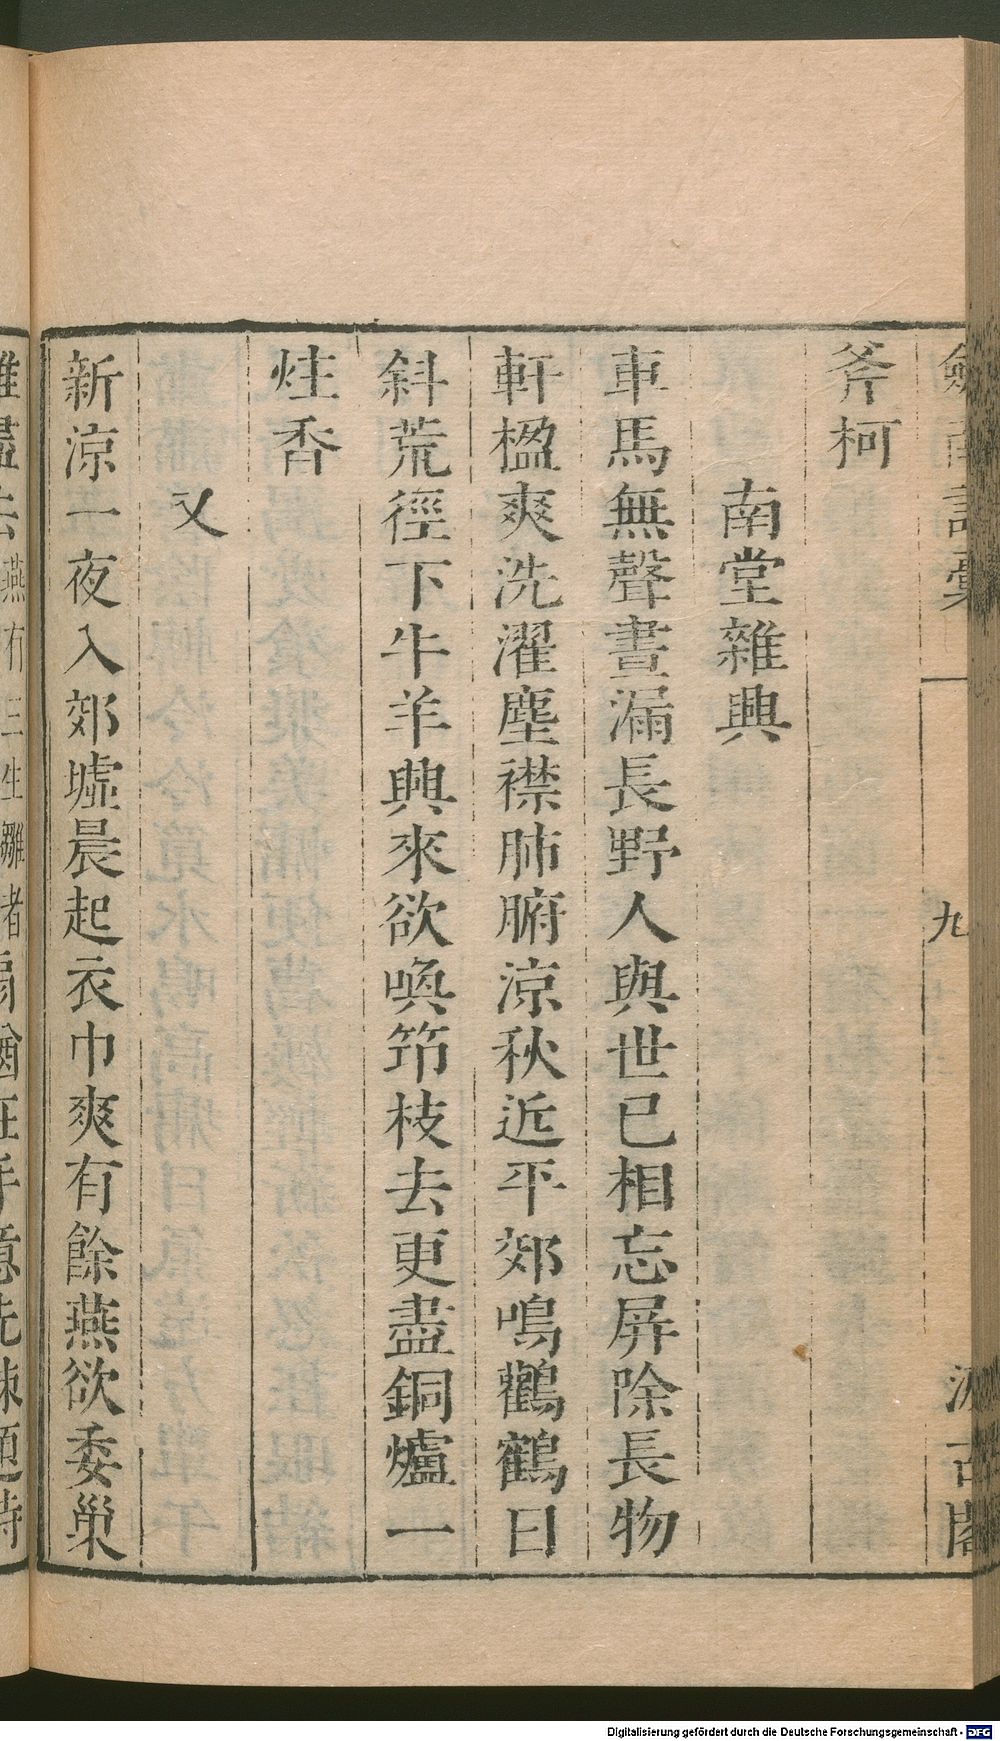 劍南詩稾
九
汲古閣
斧柯
南堂雜興
車馬無聲晝漏長野人與世已相忘屏除長物
軒楹爽洗濯塵襟肺腑涼秋近平郊鳴鸛鶴日
斜荒徑下牛羊興來欲喚笻枝去更盡銅爐一
炷香
又
新涼一夜入郊墟晨起衣巾爽有餘燕欲委巢
雖盡去燕有三生雛者扇猶在手意先疎適時
Digitalisierung gefördert durch die Deutsche Forschungsgemeinschaft - DFG